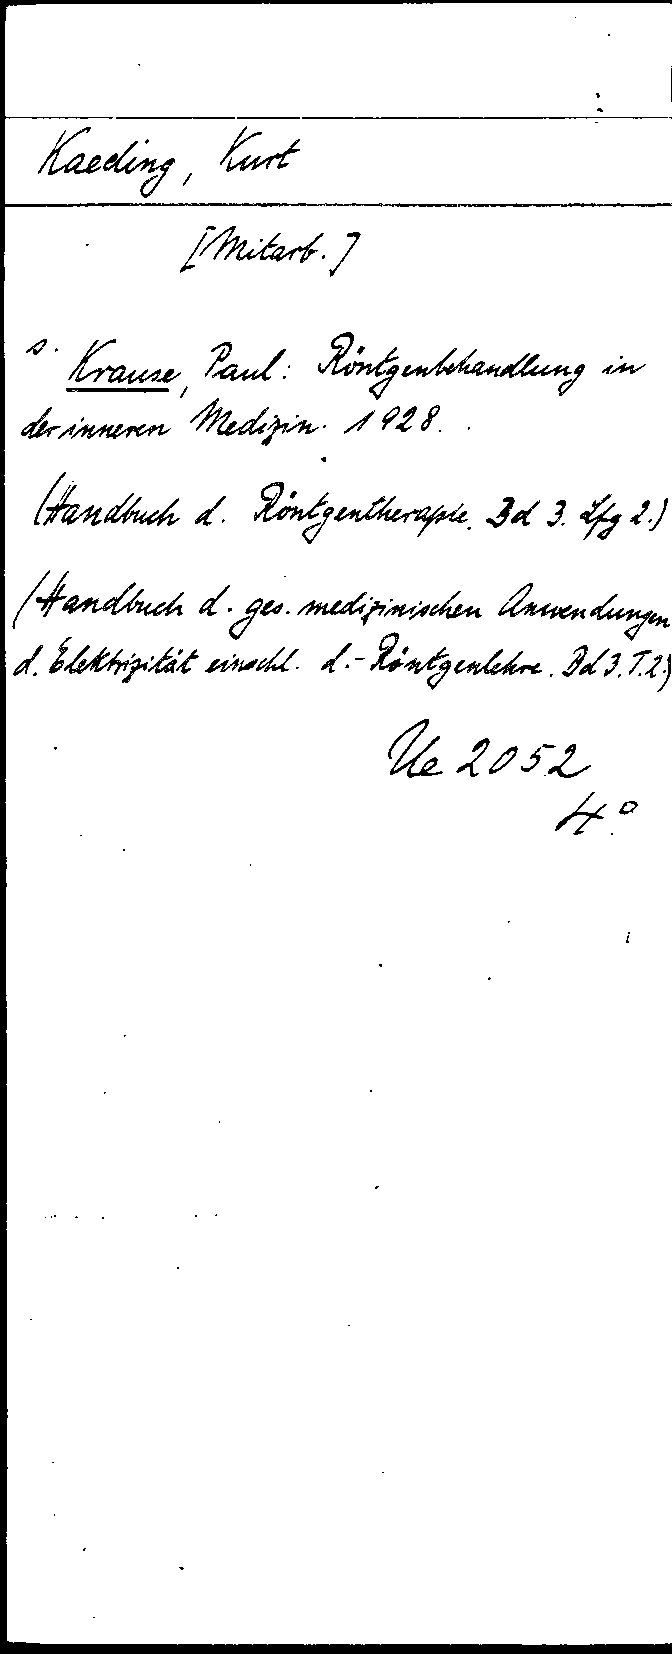 Kaeding, Kurt
[Mitarb.]
s. Krause, Paul: Röntgenbehandlung in
der inneren Medizin. 1928.
(Handbuch d. Röntgentherapie. Bd 3. Lfg 2.)
(Handbuch d. ges. medizinischen Anwendungen
d. Elektrizität einschl. d. Röntgenlehre. Bd 3. T. 2.)
Ue 2052
4°